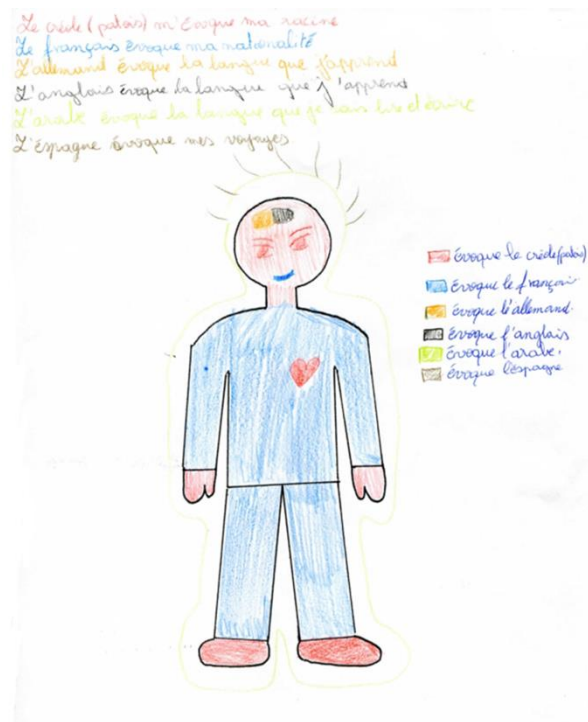 Le créole (patois) m'évoque ma racine
Le français évoque ma nationalité
L'allemand évoque la langue que j'apprend
L'anglais évoque la langue que j'apprend
L'arabe évoque la langue que je sais lire et écrire
L'éspagne évoque mes voyages.
évoque le créole (patois)
évoque le français
évoque l'allemand.
évoque l'anglais
évoque l'arabe.
évoque l'éspagne